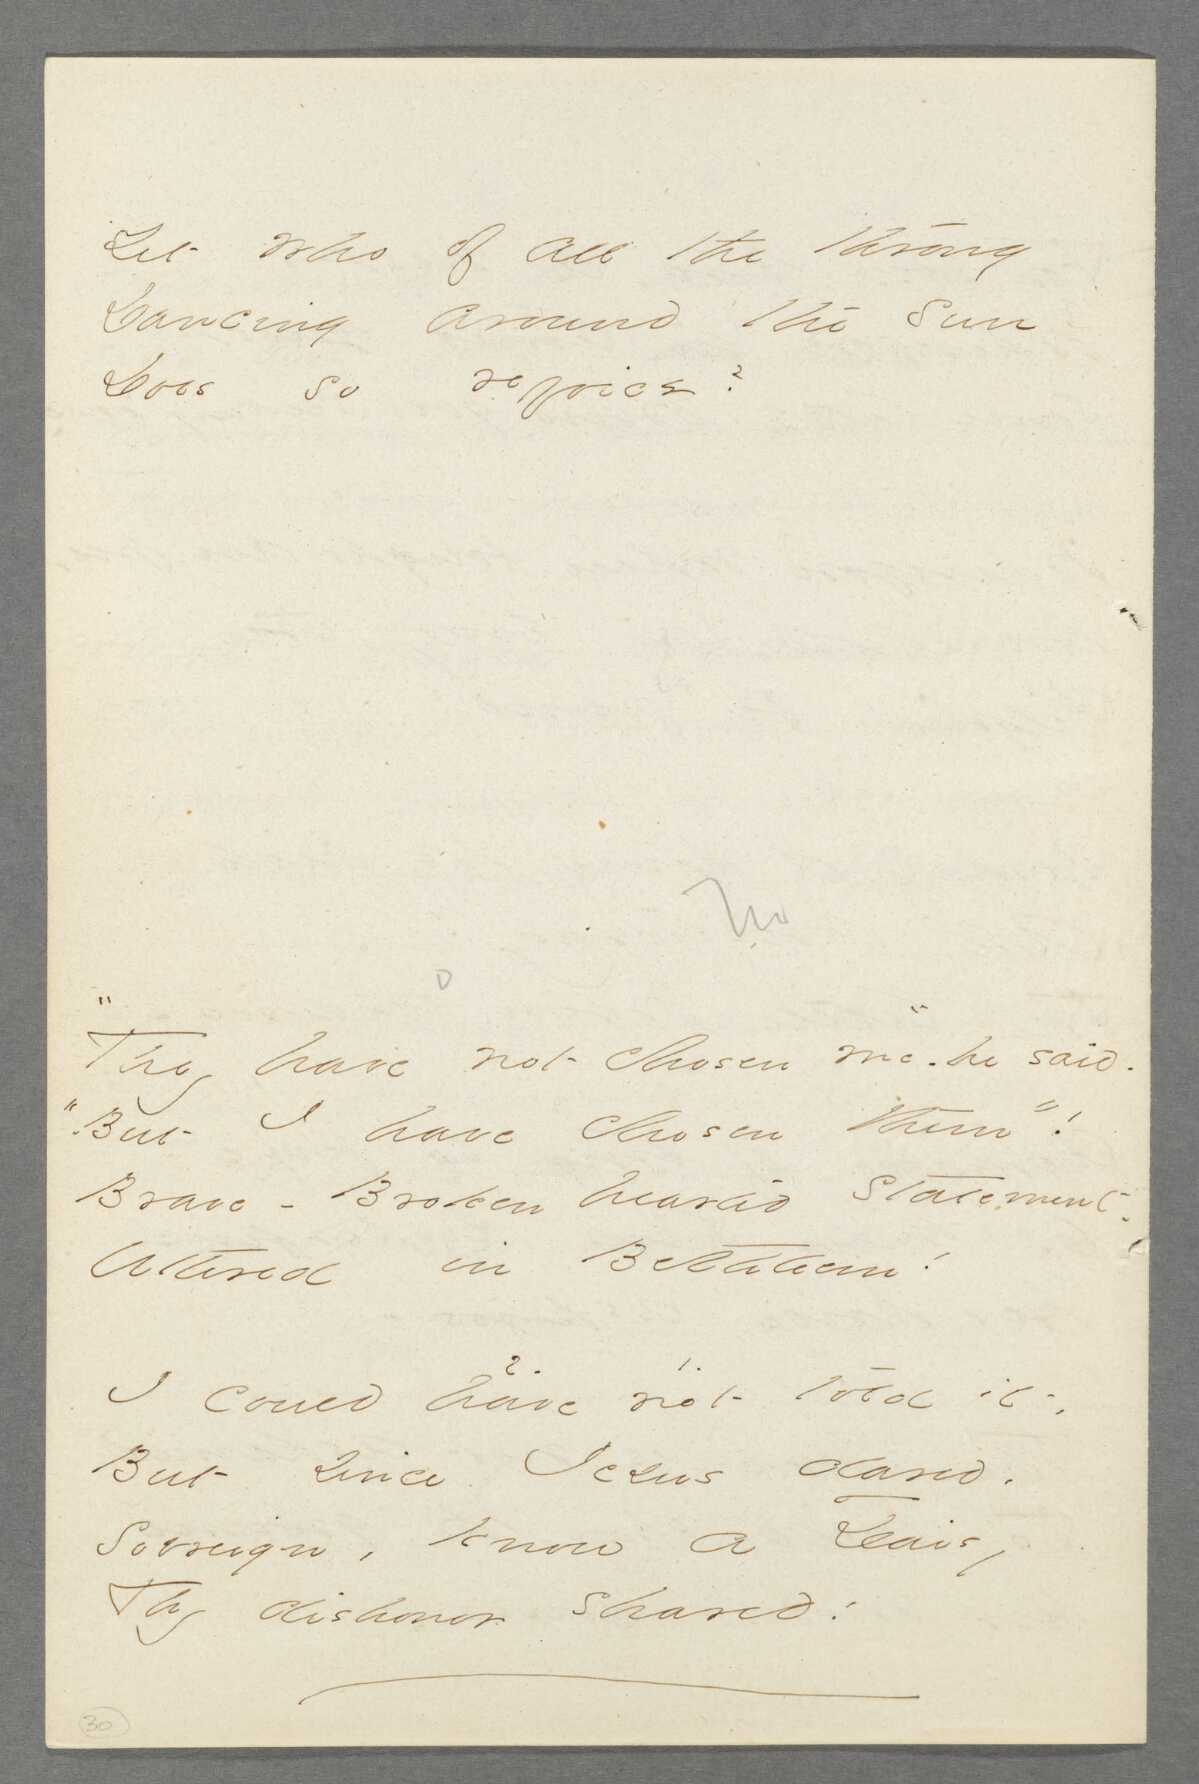 Yet who of all the throng
Dancing around the Sun
Does so rejoice?
No
"They have not chosen me", he said.
"But I have chosen them"!
Brave - Broken hearted statement.
Uttered in Bethleem!
2. 1.
I could have not told it,
But since Jesus dared.
Sovreign, know a Daisy
Thy dishonor shared!
30